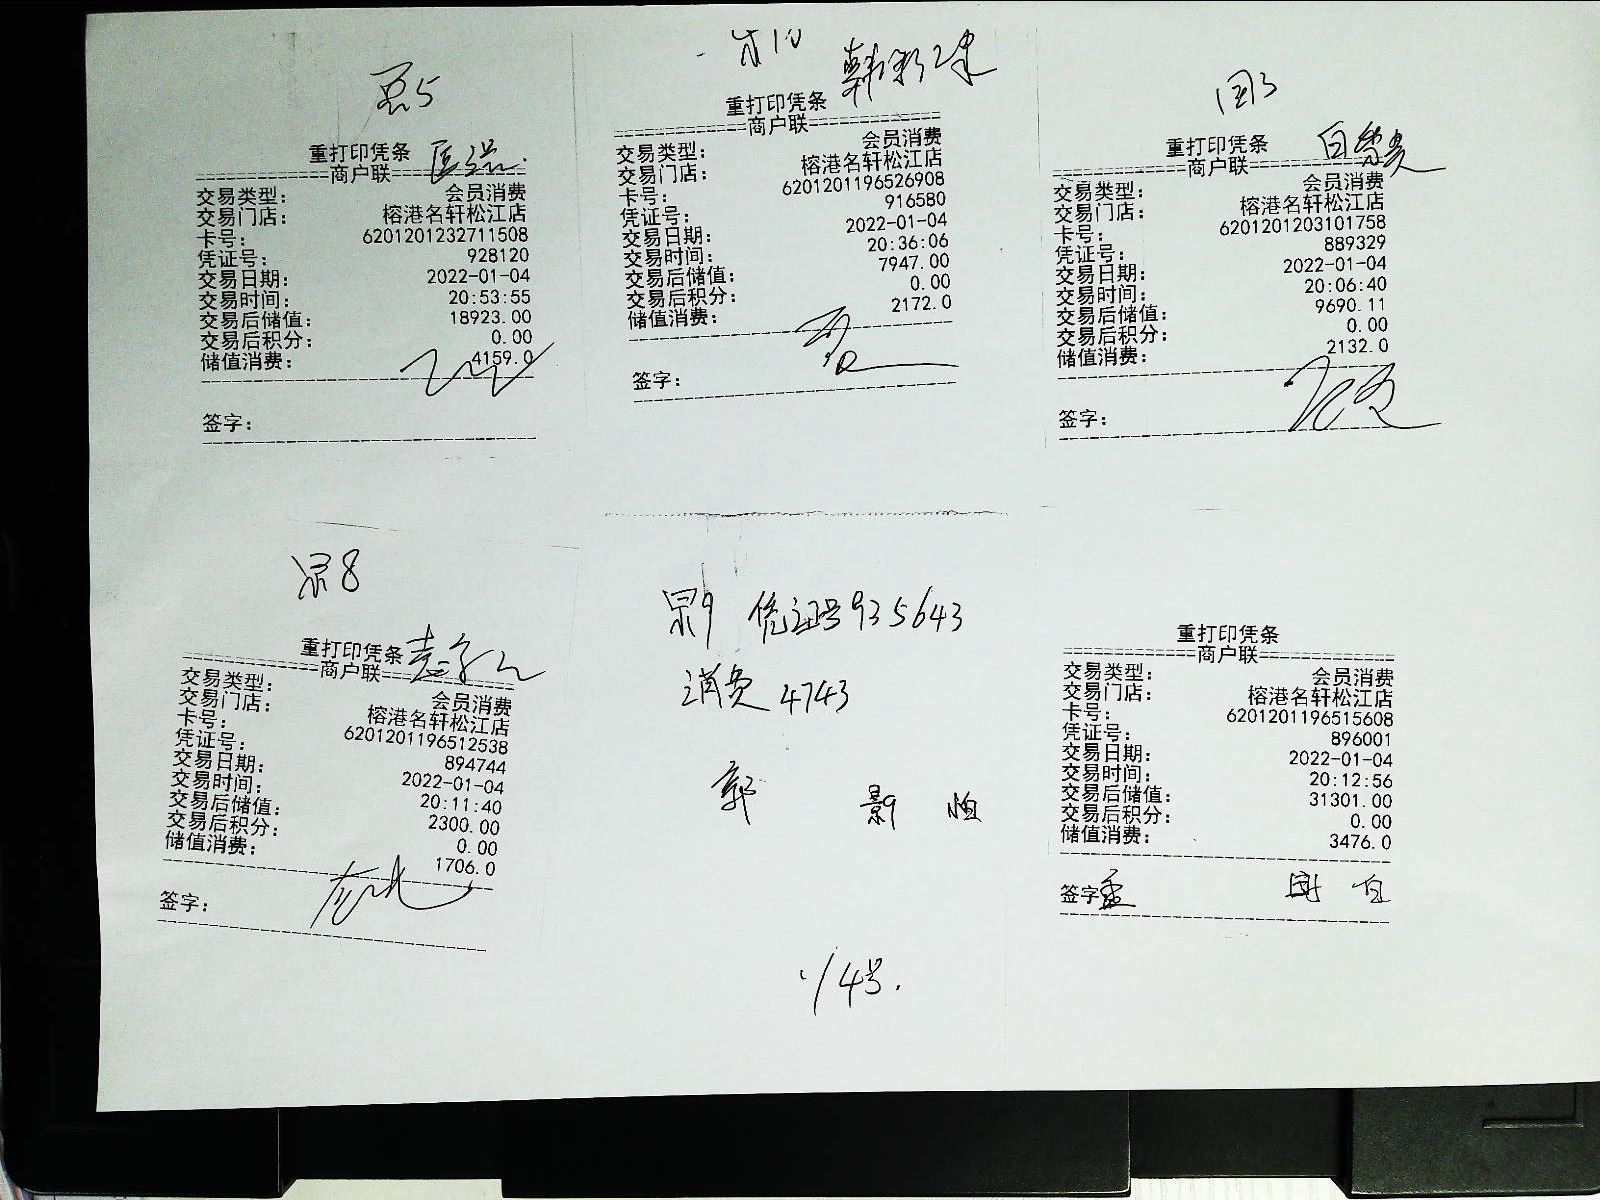 重打印凭条
商户联
交易类型： 会员消费
交易门店： 榕港名轩松江店
卡号： 6201201232711508
凭证号： 928120
交易日期： 2022-01-04
交易时间： 20:53:55
交易后储值： 18923.00
交易后积分： 0.00
储值消费： 4159.0
签字：
重打印凭条
商户联
交易类型： 会员消费
交易门店： 榕港名轩松江店
卡号： 6201201196526908
凭证号： 916580
交易日期： 2022-01-04
交易时间： 20:36:06
交易后储值： 7947.00
交易后积分： 0.00
储值消费： 2172.0
签字：
重打印凭条
商户联
交易类型： 会员消费
交易门店： 榕港名轩松江店
卡号： 6201201203101758
凭证号： 889329
交易日期： 2022-01-04
交易时间： 20:06:40
交易后储值： 9690.11
交易后积分： 0.00
储值消费： 2132.0
签字：
重打印凭条
商户联
交易类型： 会员消费
交易门店： 榕港名轩松江店
卡号： 6201201196512538
凭证号： 894744
交易日期： 2022-01-04
交易时间： 20:11:40
交易后储值： 2300.00
交易后积分： 0.00
储值消费： 1706.0
签字：
凭证号935643
消费4743
郭
1/4号.
重打印凭条
商户联
交易类型： 会员消费
交易门店： 榕港名轩松江店
卡号： 6201201196515608
凭证号： 896001
交易日期： 2022-01-04
交易时间： 20:12:56
交易后储值： 31301.00
交易后积分： 0.00
储值消费： 3476.0
签字